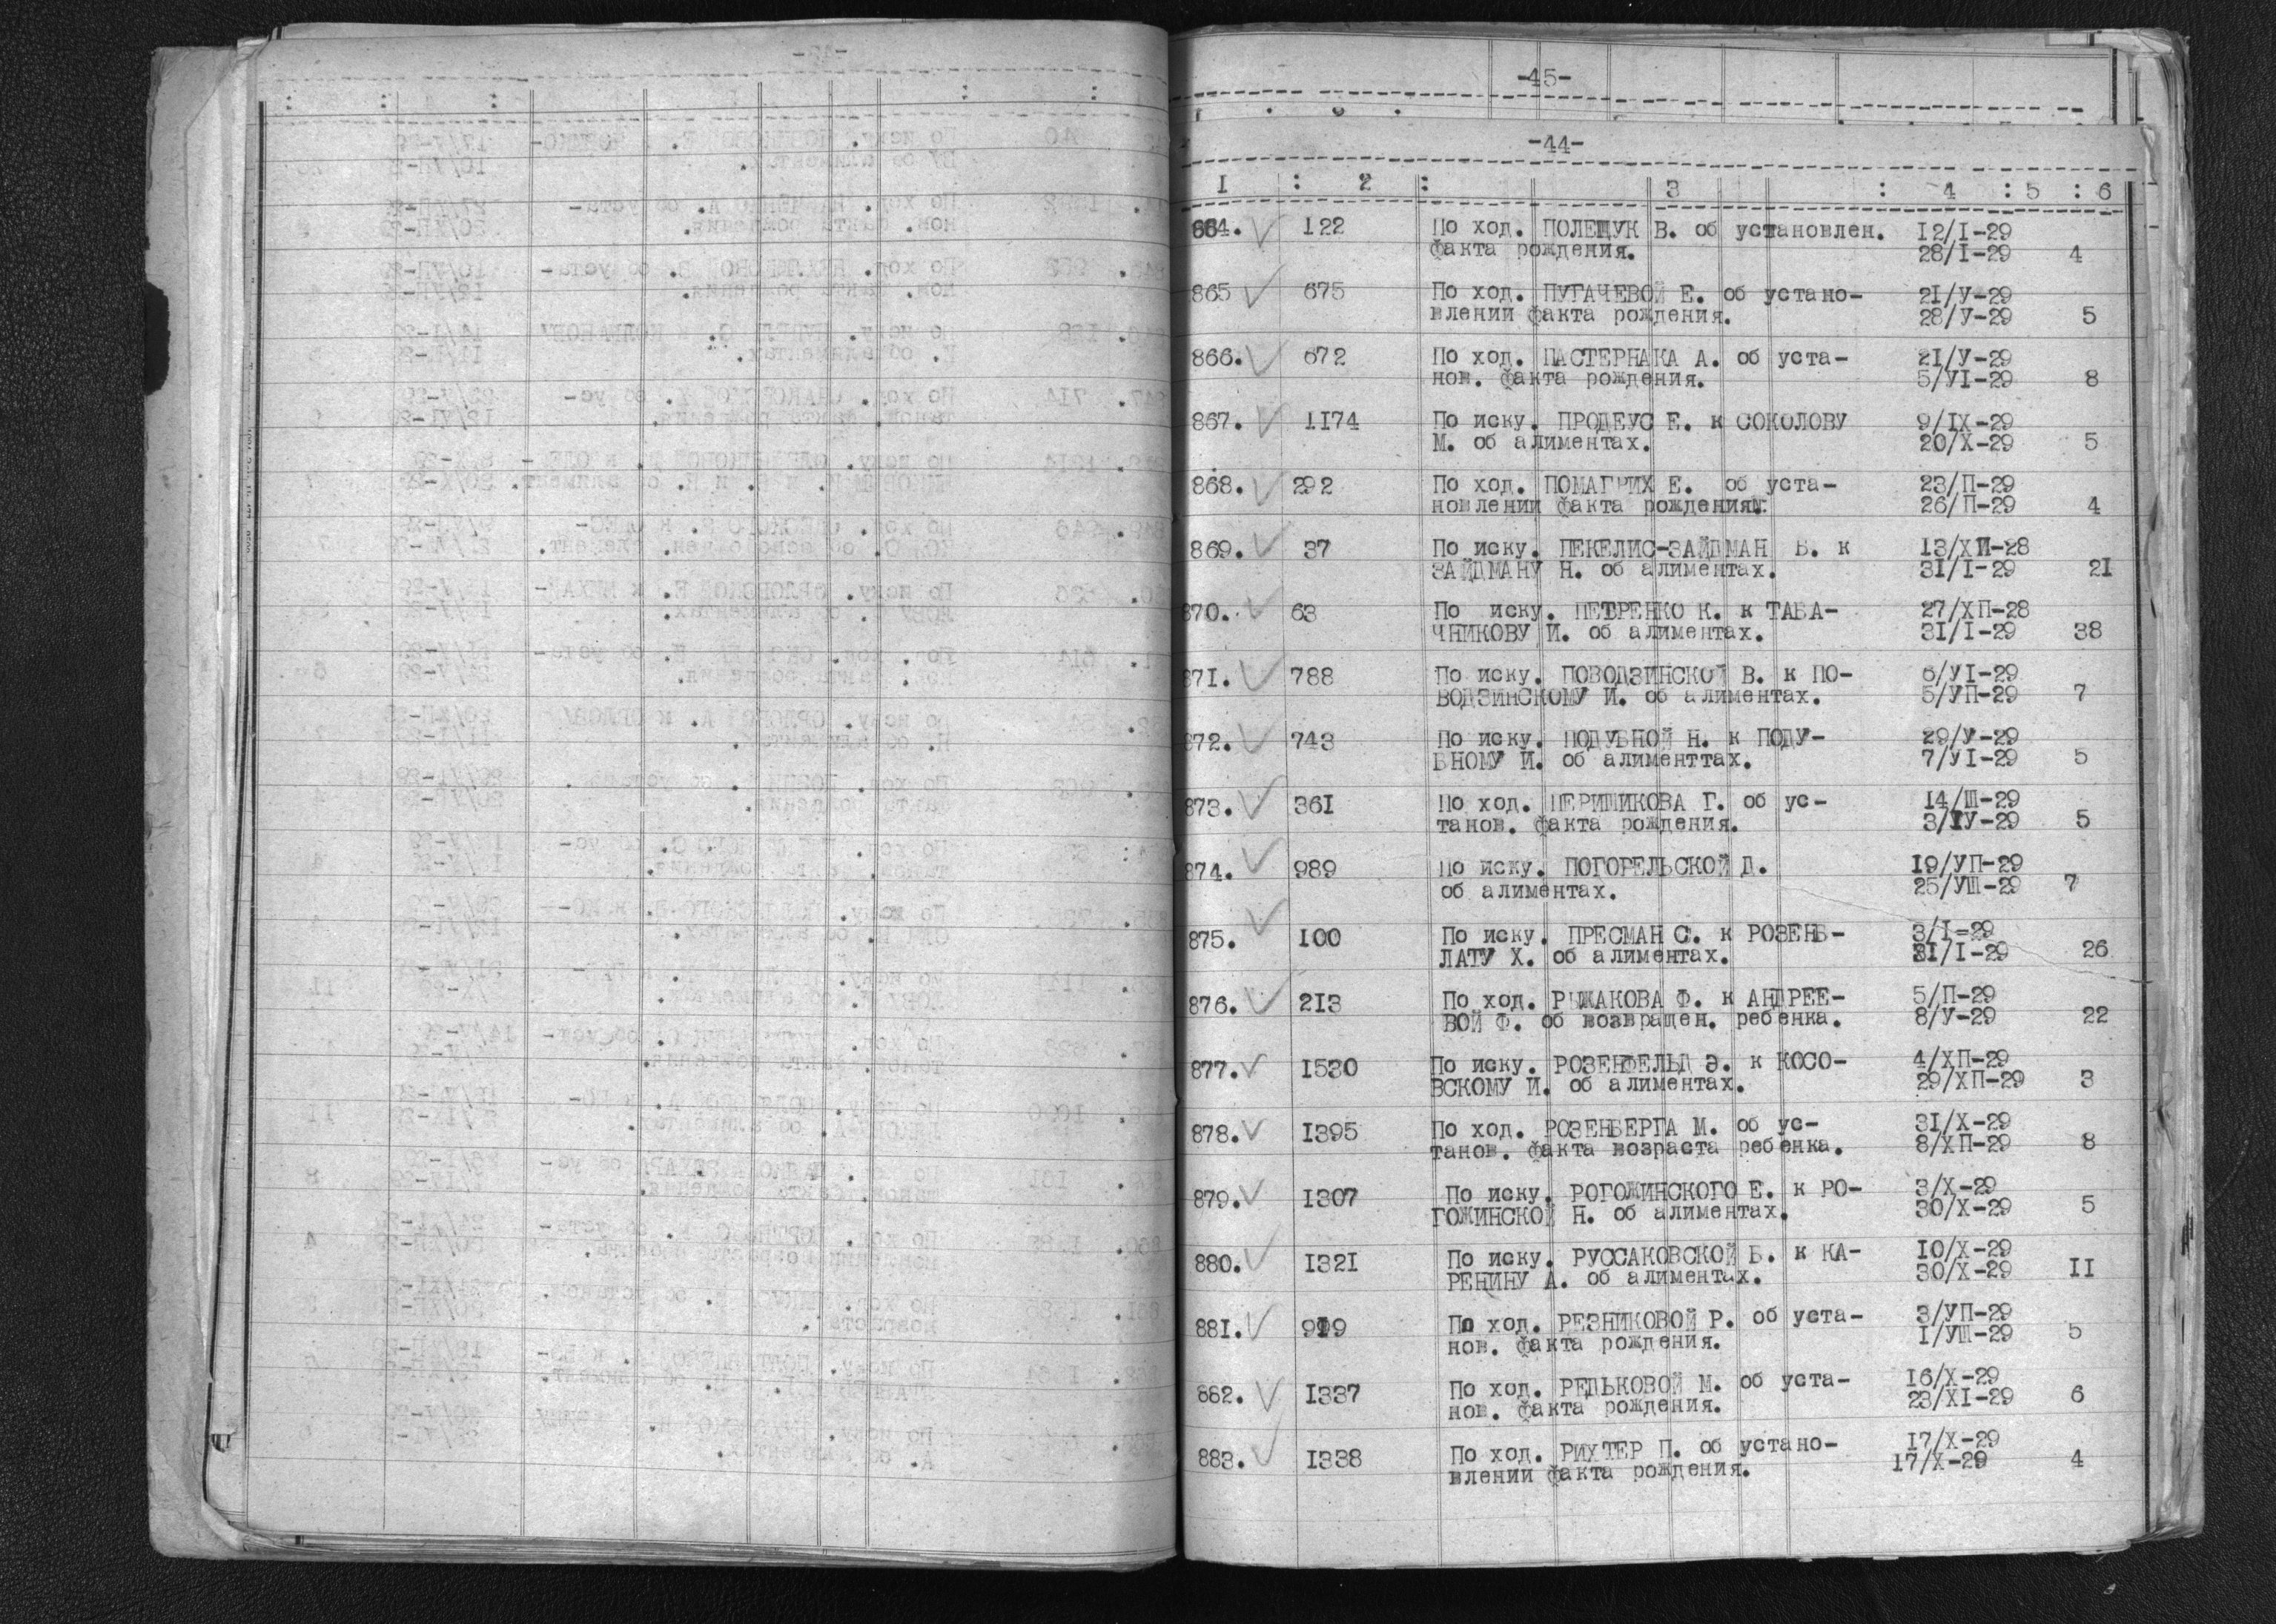 -45-
-44-
I : 2 : 3 : 4 : 5 : 6
664. 122 По ход. ПОЛЕЩУК В. об установлен. 12/I-29
факта рождения. 28/I-29 4
865 675 По ход. ПУГАЧЕВОЙ Е. об устано- 21/У-29
влении факта рождения. 28/У-29 5
866. 672 По ход. ПАСТЕРНАКА А. об уста- 21/У-29
нов. факта рождения. 5/УI-29 8
867. II74 По иску. ПРОДЕУС Е. к СОКОЛОВУ 9/IX-29
М. об алиментах. 20/X-29 5
868. 292 По ход. ПОМАГРИХ Е. об уста- 23/П-29
новлении факта рождения. 26/П-29 4
869. 37 По иску. ПЕКЕЛИС-ЗАЙДМАН Б. к 13/ХП-28
ЗАЙДМАНУ Н. об алиментах. 31/I-29 21
870. 63 По иску. ПЕТРЕНКО К. к ТАБА- 27/ХП-28
ЧНИКОВУ И. об алиментах. 31/I-29 38
871. 788 По иску. ПОВОДЗИНСКОЙ В. к ПО- 6/УI-29
ВОДЗИНСКОМУ И. об алиментах. 5/УП-29 7
872. 743 По иску. ПОДУБНОЙ Н. к ПОДУ- 29/У-29
БНОМУ И. об алименттах. 7/УI-29 5
873. 361 По ход. ПЕРИШИКОВА Г. об ус- 14/Ш-29
танов. факта рождения. 3/IУ-29 5
874. 989 По иску. ПОГОРЕЛЬСКОЙ Д. 19/УП-29
об алиментах. 25/УШ-29 7
875. I00 По иску. ПРЕСМАН С. к РОЗЕНБ- 3/I=29
ЛАТУ Х. об алиментах. 31/I-29 26
876. 213 По ход. РЫЖАКОВА Ф. к АНДРЕЕ- 5/П-29
ВОЙ Ф. об возвращен. ребенка. 8/У-29 22
877. I530 По иску. РОЗЕНФЕЛЬД Э. к КОСО- 4/ХП-29
ВСКОМУ И. об алиментах. 29/ХП-29 3
878. I395 По ход. РОЗЕНБЕРГА М. об ус- 31/Х-29
танов. факта возраста ребенка. 8/ХП-29 8
879. I307 По иску. РОГОЖИНСКОГО Е. к РО- 3/Х-29
ГОЖИНСКОЙ Н. об алиментах. 30/Х-29 5
880. I321 По иску. РУССАКОВСКОЙ Б. к КА- I0/Х-29
РЕНИНУ А. об алиментах. 30/Х-29 II
881. 919 По ход. РЕЗНИКОВОЙ Р. об уста- 3/УП-29
нов. факта рождения. I/УШ-29 5
882. I337 По ход. РЕДЬКОВОЙ М. об уста- I6/Х-29
нов. факта рождения. 23/ХI-29 6
883. I338 По ход. РИХТЕР П. об устано- I7/Х-29
влении факта рождения. I7/Х-29 4